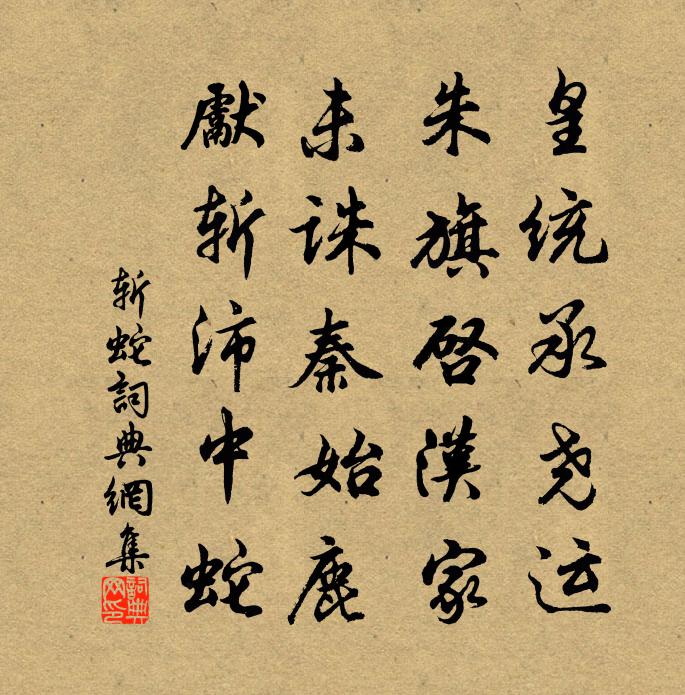 皇统承尧运
朱旗啓漢家
未诛秦始鹿
獻斩沛中蛇
斩蛇詞典網集
詞典网印